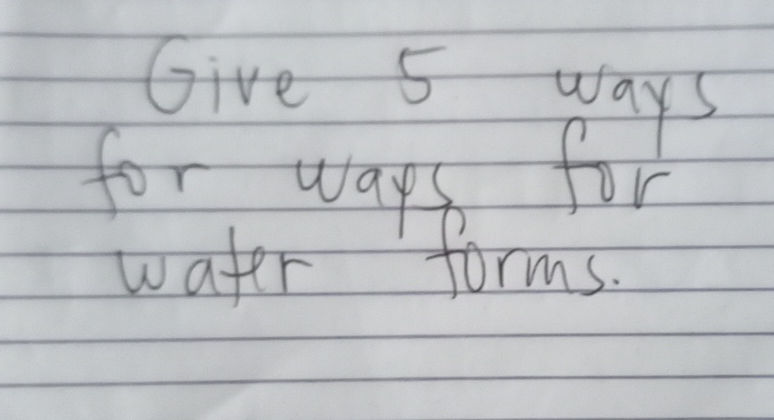 Give 5 ways
for ways for
water forms.